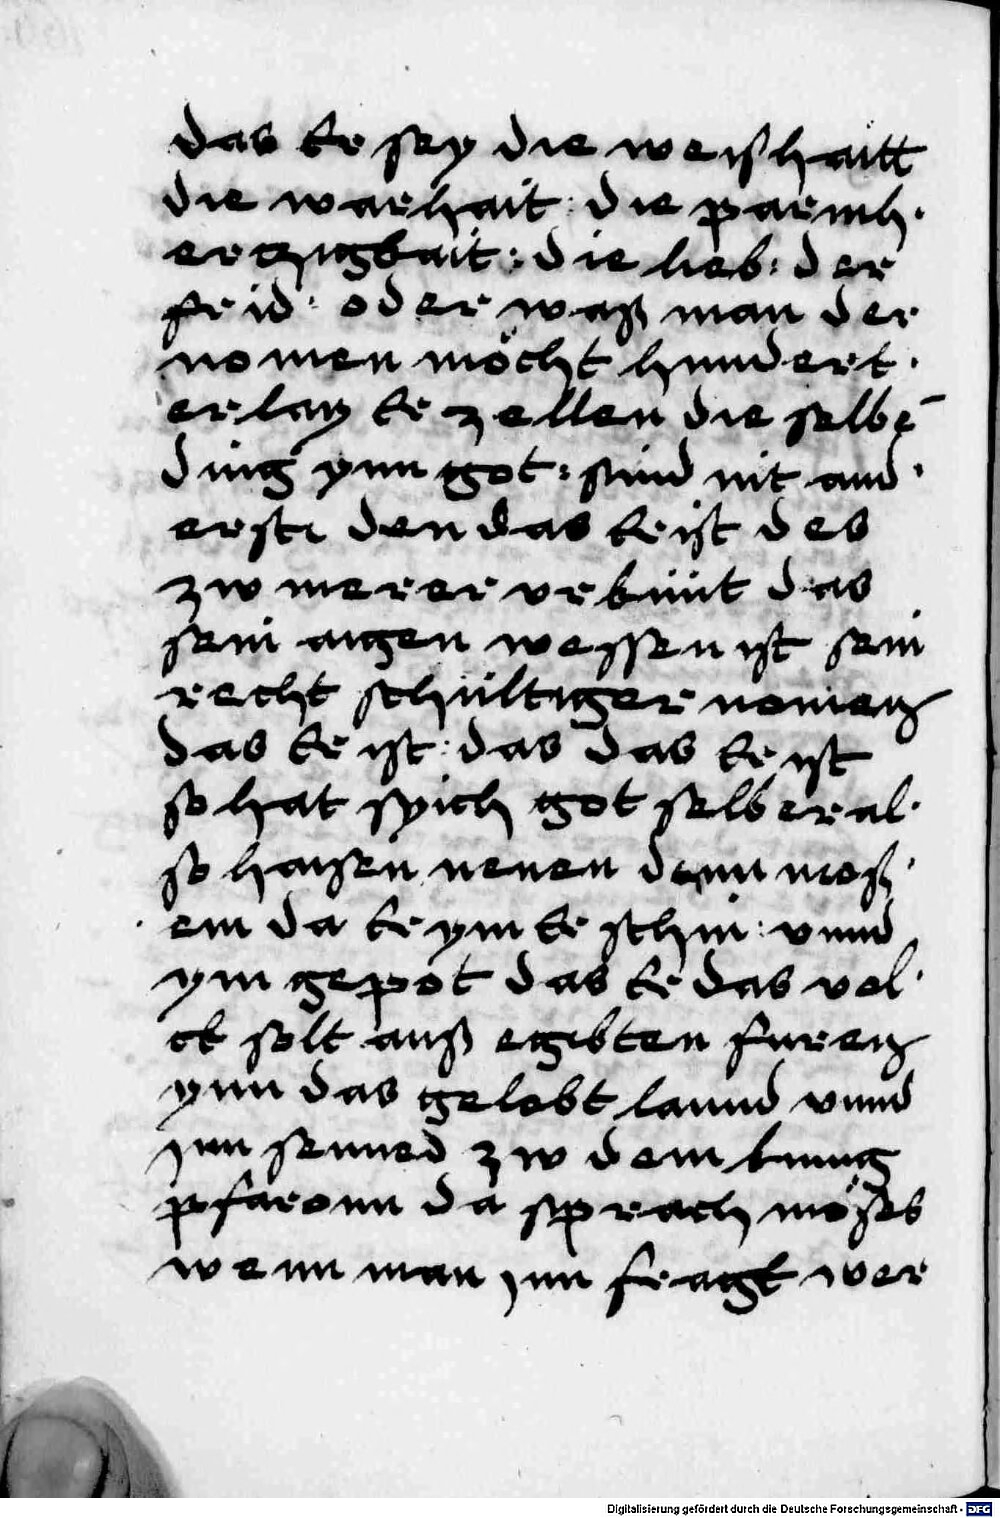 das er sey die weißhaitt
die warhait : die parmh·
erczigkait : die lieb : der
frid : oder waß man der
nomen möcht hundert·
erlay er zellen die selbē
ding ynn got : sind nit and·
erst den das er ist des
zw merer vrkünt das
sein aigen wessen ist sein
recht schültiger nomen
das er ist : das das er ist
so hat syich got selber al·
so haisen nenen denn moß·
em da er ym erschin : vnnd
ym gepot das er das vol·
ck solt auß egibten furen
ynn das gelobt lannd vnnd
jnn senned zw dem kunig
pfaronn da sprach möses
wenn man jnn fragt wer
Digitalisierung gefördert durch die Deutsche Forschungsgemeinschaft - DFG